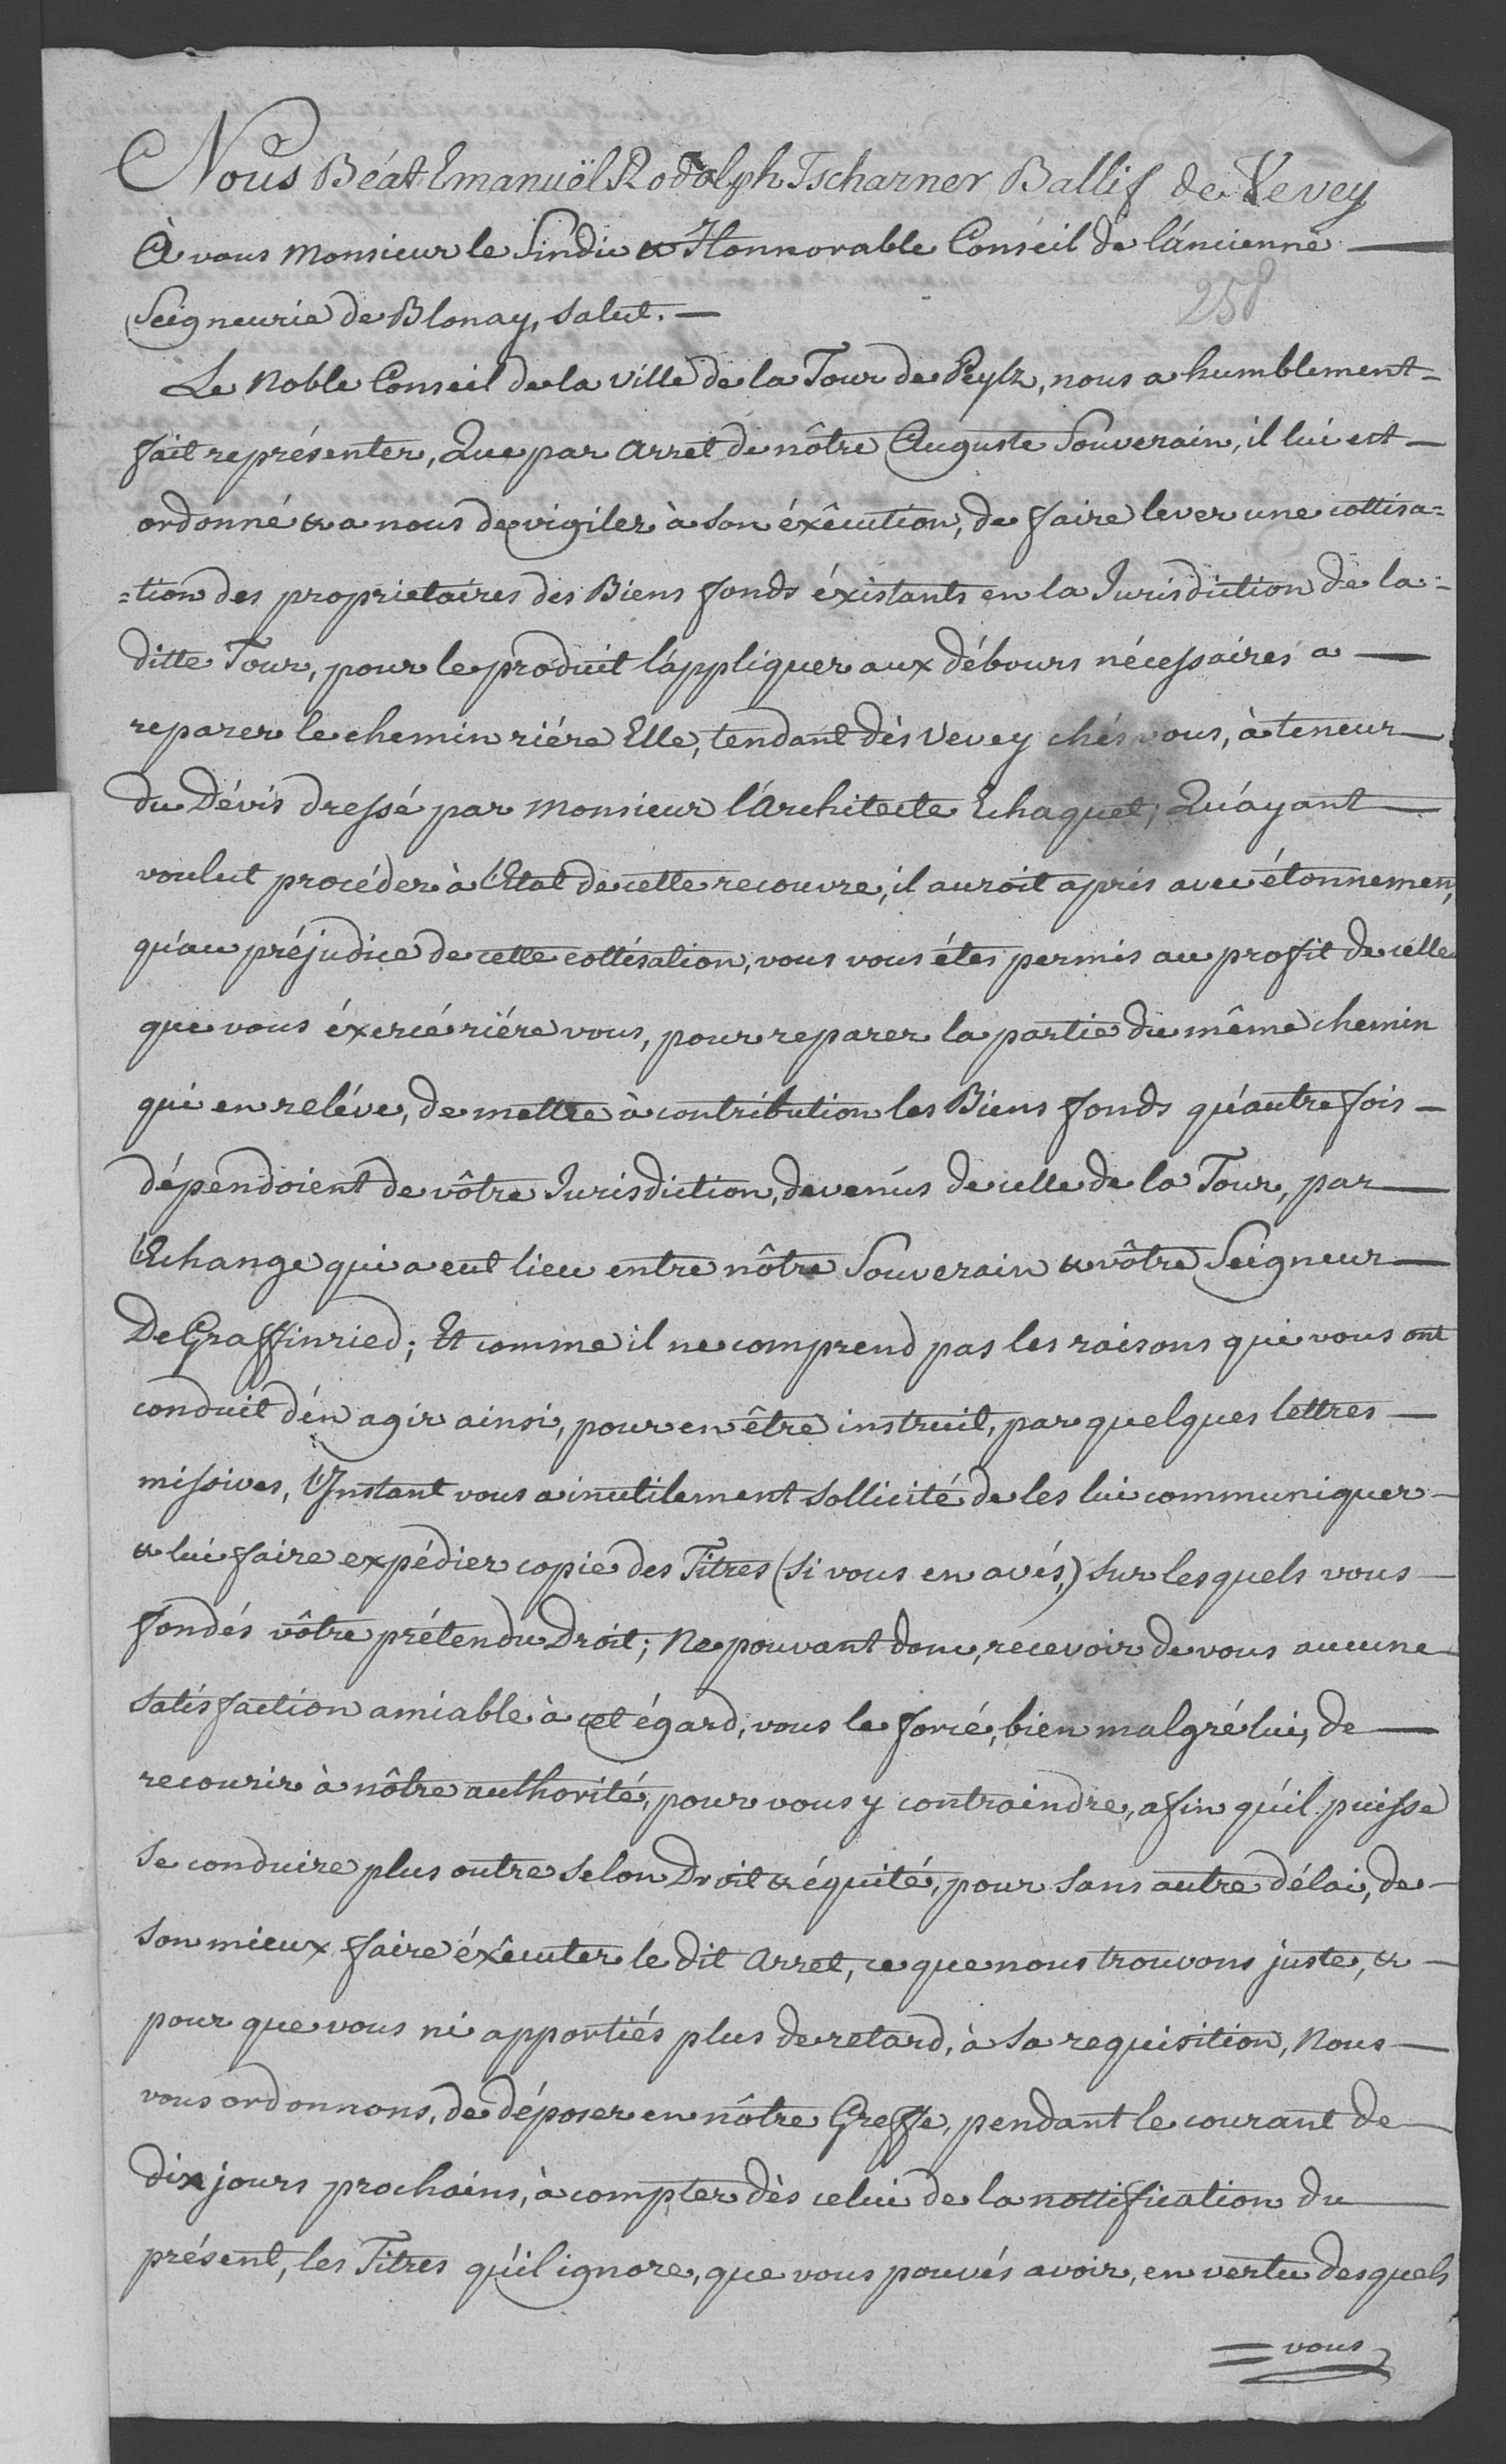 Nous Béat Emanuël Rodolph Tscharner Ballif de Vevey
À vous Monsieur le Sindic & Honnorable Conseil de l'ancienne —
Seigneurie de Blonay, salut. —
258
Le Noble Conseil de la Ville de la Tour de Peylz, nous a humblement =
fait représenter, Que par Arret de nôtre Auguste Souverain, il lui est —
ordonné & a nous de vigiler à son éxêcution, de faire lever une cottisa=
=tion des proprietaires des Biens fonds éxistants en la Jurisdiction de la =
ditte Tour, pour le produit l'appliquer aux débours nécessaires a —
reparer le chemin riére Elle, tendant dès Vevey chés vous, à teneur —
du Dévis dressé par Monsieur l'Architecte Echaquet; Qu'ayant —
voulut procéder à l'Etat de cette recouvre, il auroit apris avec étonnemen,
qu'au préjudice de cette cottisation, vous vous étes permis au profit de celle
que vous éxercé riére vous, pour reparer la partie du même chemin
qui en reléve, de mettre à contribution les Biens fonds qu'autrefois —
dépendoient de vôtre Jurisdiction, devenus de celle de la Tour, par —
l'Echange qui a eut lieu entre nôtre Souverain & vôtre Seigneur —
De Graffinried; Et comme il ne comprend pas les raisons qui vous ont
conduit d'en agir ainsi, pour en être instruit, par quelques lettres —
missives, l'Instant vous a inutilement sollicité de les lui communiquer —
& lui faire expédier copie des Titres (si vous en avés,) sur lesquels vous —
fondés vôtre prétendu Droit; Ne pouvant donc, recevoir de vous aucune —
satisfaction amiable à cet égard, vous le forcé, bien malgré lui, de —
recourir à nôtre authorité, pour vous y contraindre, afin qu'il puisse
se conduire plus outre selon Droit & équité, pour sans autre délai, de —
son mieux faire éxêcuter le dit Arret, ce que nous trouvons juste, & —
pour que vous ni apportiés plus de retard, à sa requisition, Nous —
vous ordonnons, de déposer en nôtre Greffe, pendant le courant de —
dix jours prochains, à compter dès celui de la nottification du —
présent, les Titres qu'il ignore, que vous pouvés avoir, en vertu desquels
= vous